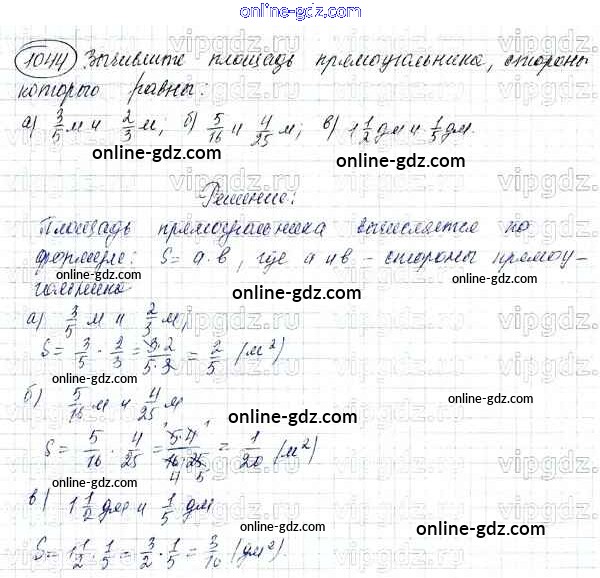 online-gdz.com
1044 Вычислите площадь прямоугольника, стороны
которого равны:
а) 3/5 м и 2/3 м; б) 5/16 и 4/25 м; в) 1 1/2 дм и 1/5 дм.
online-gdz.com
online-gdz.com
Решение:
online-gdz.com
Площадь прямоугольника вычисляется по
формуле: S = a · b, где a и b – стороны прямоу-
гольника
online-gdz.com
а) 3/5 м и 2/3 м,
online-gdz.com
S = 3/5 · 2/3 = 3·2/5·3 = 2/5 (м²)
online-gdz.com
б) 5/16 м и 4/25 м
online-gdz.com
S = 5/16 · 4/25 = 5·4/16·25 = 1/20 (м²)
online-gdz.com
в) 1 1/2 дм и 1/5 дм
online-gdz.com
S = 1 1/2 · 1/5 = 3/2 · 1/5 = 3/10 (дм²).
online-gdz.com